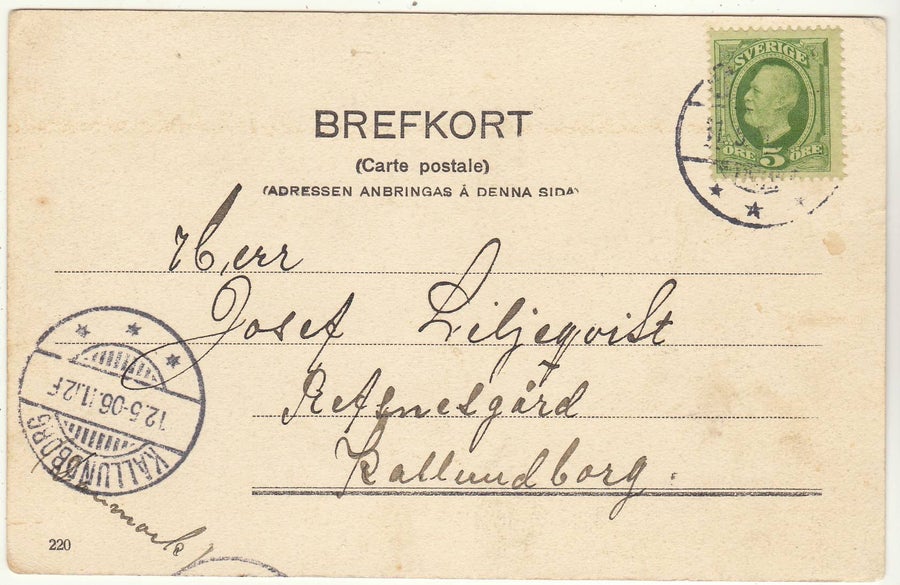 BREFKORT
(Carte postale)
(ADRESSEN ANBRINGAS Å DENNA SIDA)
SVERIGE
ÖRE 5 ÖRE
Herr
Josef Liljeqvist
Refsnesgård
Kallundborg.
KALLUNDBORG
12.5-06.11.12F
Danmark
220